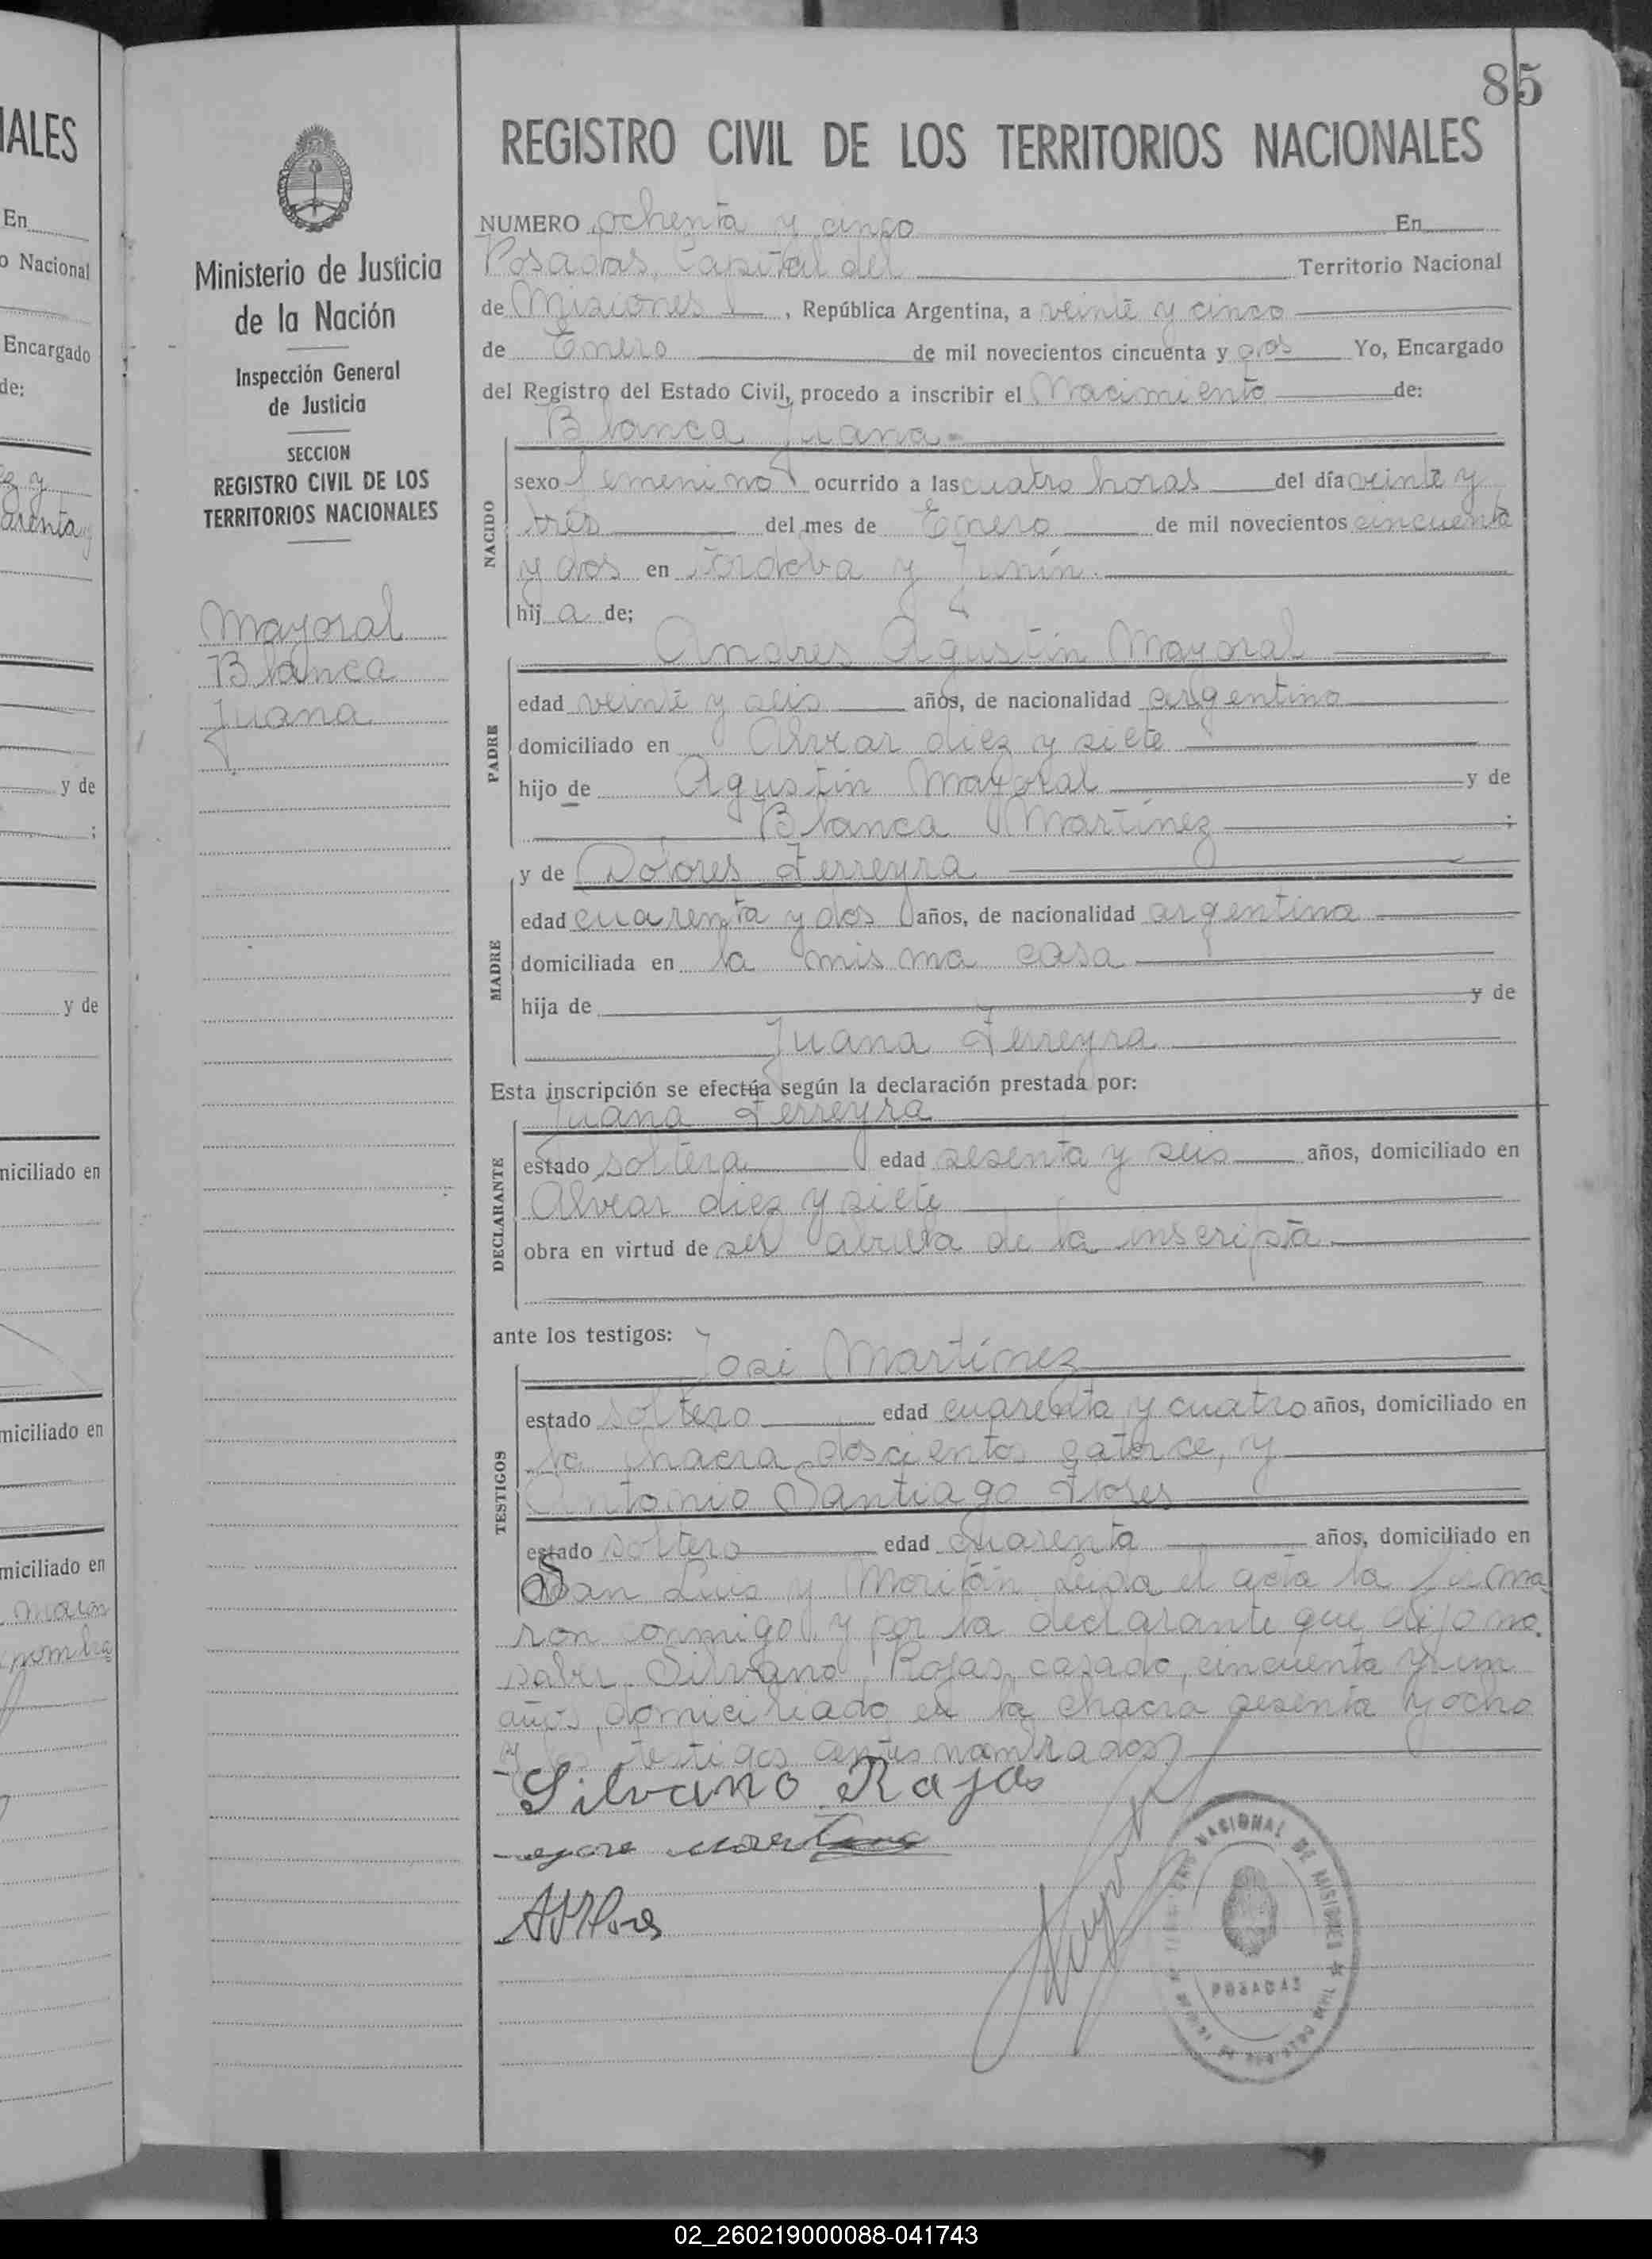 85
REGISTRO CIVIL DE LOS TERRITORIOS NACIONALES
Ministerio de Justicia
de la Nación
Inspección General
de Justicia
SECCION
REGISTRO CIVIL DE LOS
TERRITORIOS NACIONALES
Mayoral
Blanca
Juana
NUMERO ochenta y cinco En
Posadas, Capital del Territorio Nacional
de Misiones, República Argentina, a veinte y cinco
de Enero de mil novecientos cincuenta y dos Yo, Encargado
del Registro del Estado Civil, procedo a inscribir el Nacimiento de:
Blanca Juana
NACIDO
sexo femenino ocurrido a las cuatro horas del día veinte y
tres del mes de Enero de mil novecientos cincuenta
y dos en Córdoba y Junín.
hija de;
PADRE
Andres Agustin Mayoral
edad veinte y seis años, de nacionalidad argentino
domiciliado en Alvear diez y siete
hijo de Agustin Mayoral y de
Blanca Martínez ;
MADRE
y de Dolores Ferreyra
edad cuarenta y dos años, de nacionalidad argentina
domiciliada en la misma casa
hija de y de
Juana Ferreyra
Esta inscripción se efectúa según la declaración prestada por:
DECLARANTE
Juana Ferreyra
estado soltera edad sesenta y seis años, domiciliado en
Alvear diez y siete
obra en virtud de ser abuela de la inscripta
ante los testigos:
TESTIGOS
José Martínez
estado soltero edad cuarenta y cuatro años, domiciliado en
la chacra doscientos catorce, y
Antonio Santiago Flores
estado soltero edad cuarenta años, domiciliado en
San Luis y Moritán Leida el acta la firma
ron conmigo y por la declarante que dijo no
saber Silvano Rojas, casado, cincuenta y un
años, domiciliado en la chacra sesenta y ocho
y los testigos antes nombrados
Silvano Rojas
ASFlores
NACIONAL DE MISIONES
POSADAS
IALES
En
o Nacional
Encargado
de:
y de
;
y de
niciliado en
miciliado en
miciliado en
02_260219000088-041743